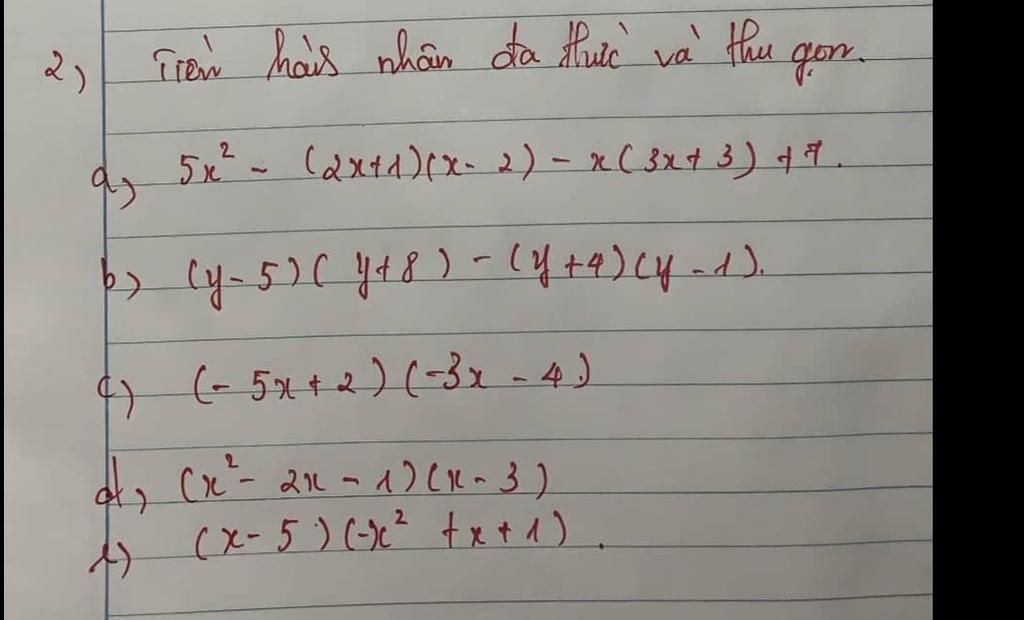 2, Tiến hành nhân đa thức và thu gọn.
a, 5x² - (2x+1)(x-2) - x(3x+3) +7.
b, (y-5)(y+8) - (y+4)(y-1).
c) (-5x+2)(-3x-4)
d, (x²-2x-1)(x-3)
e) (x-5)(-x²+x+1).